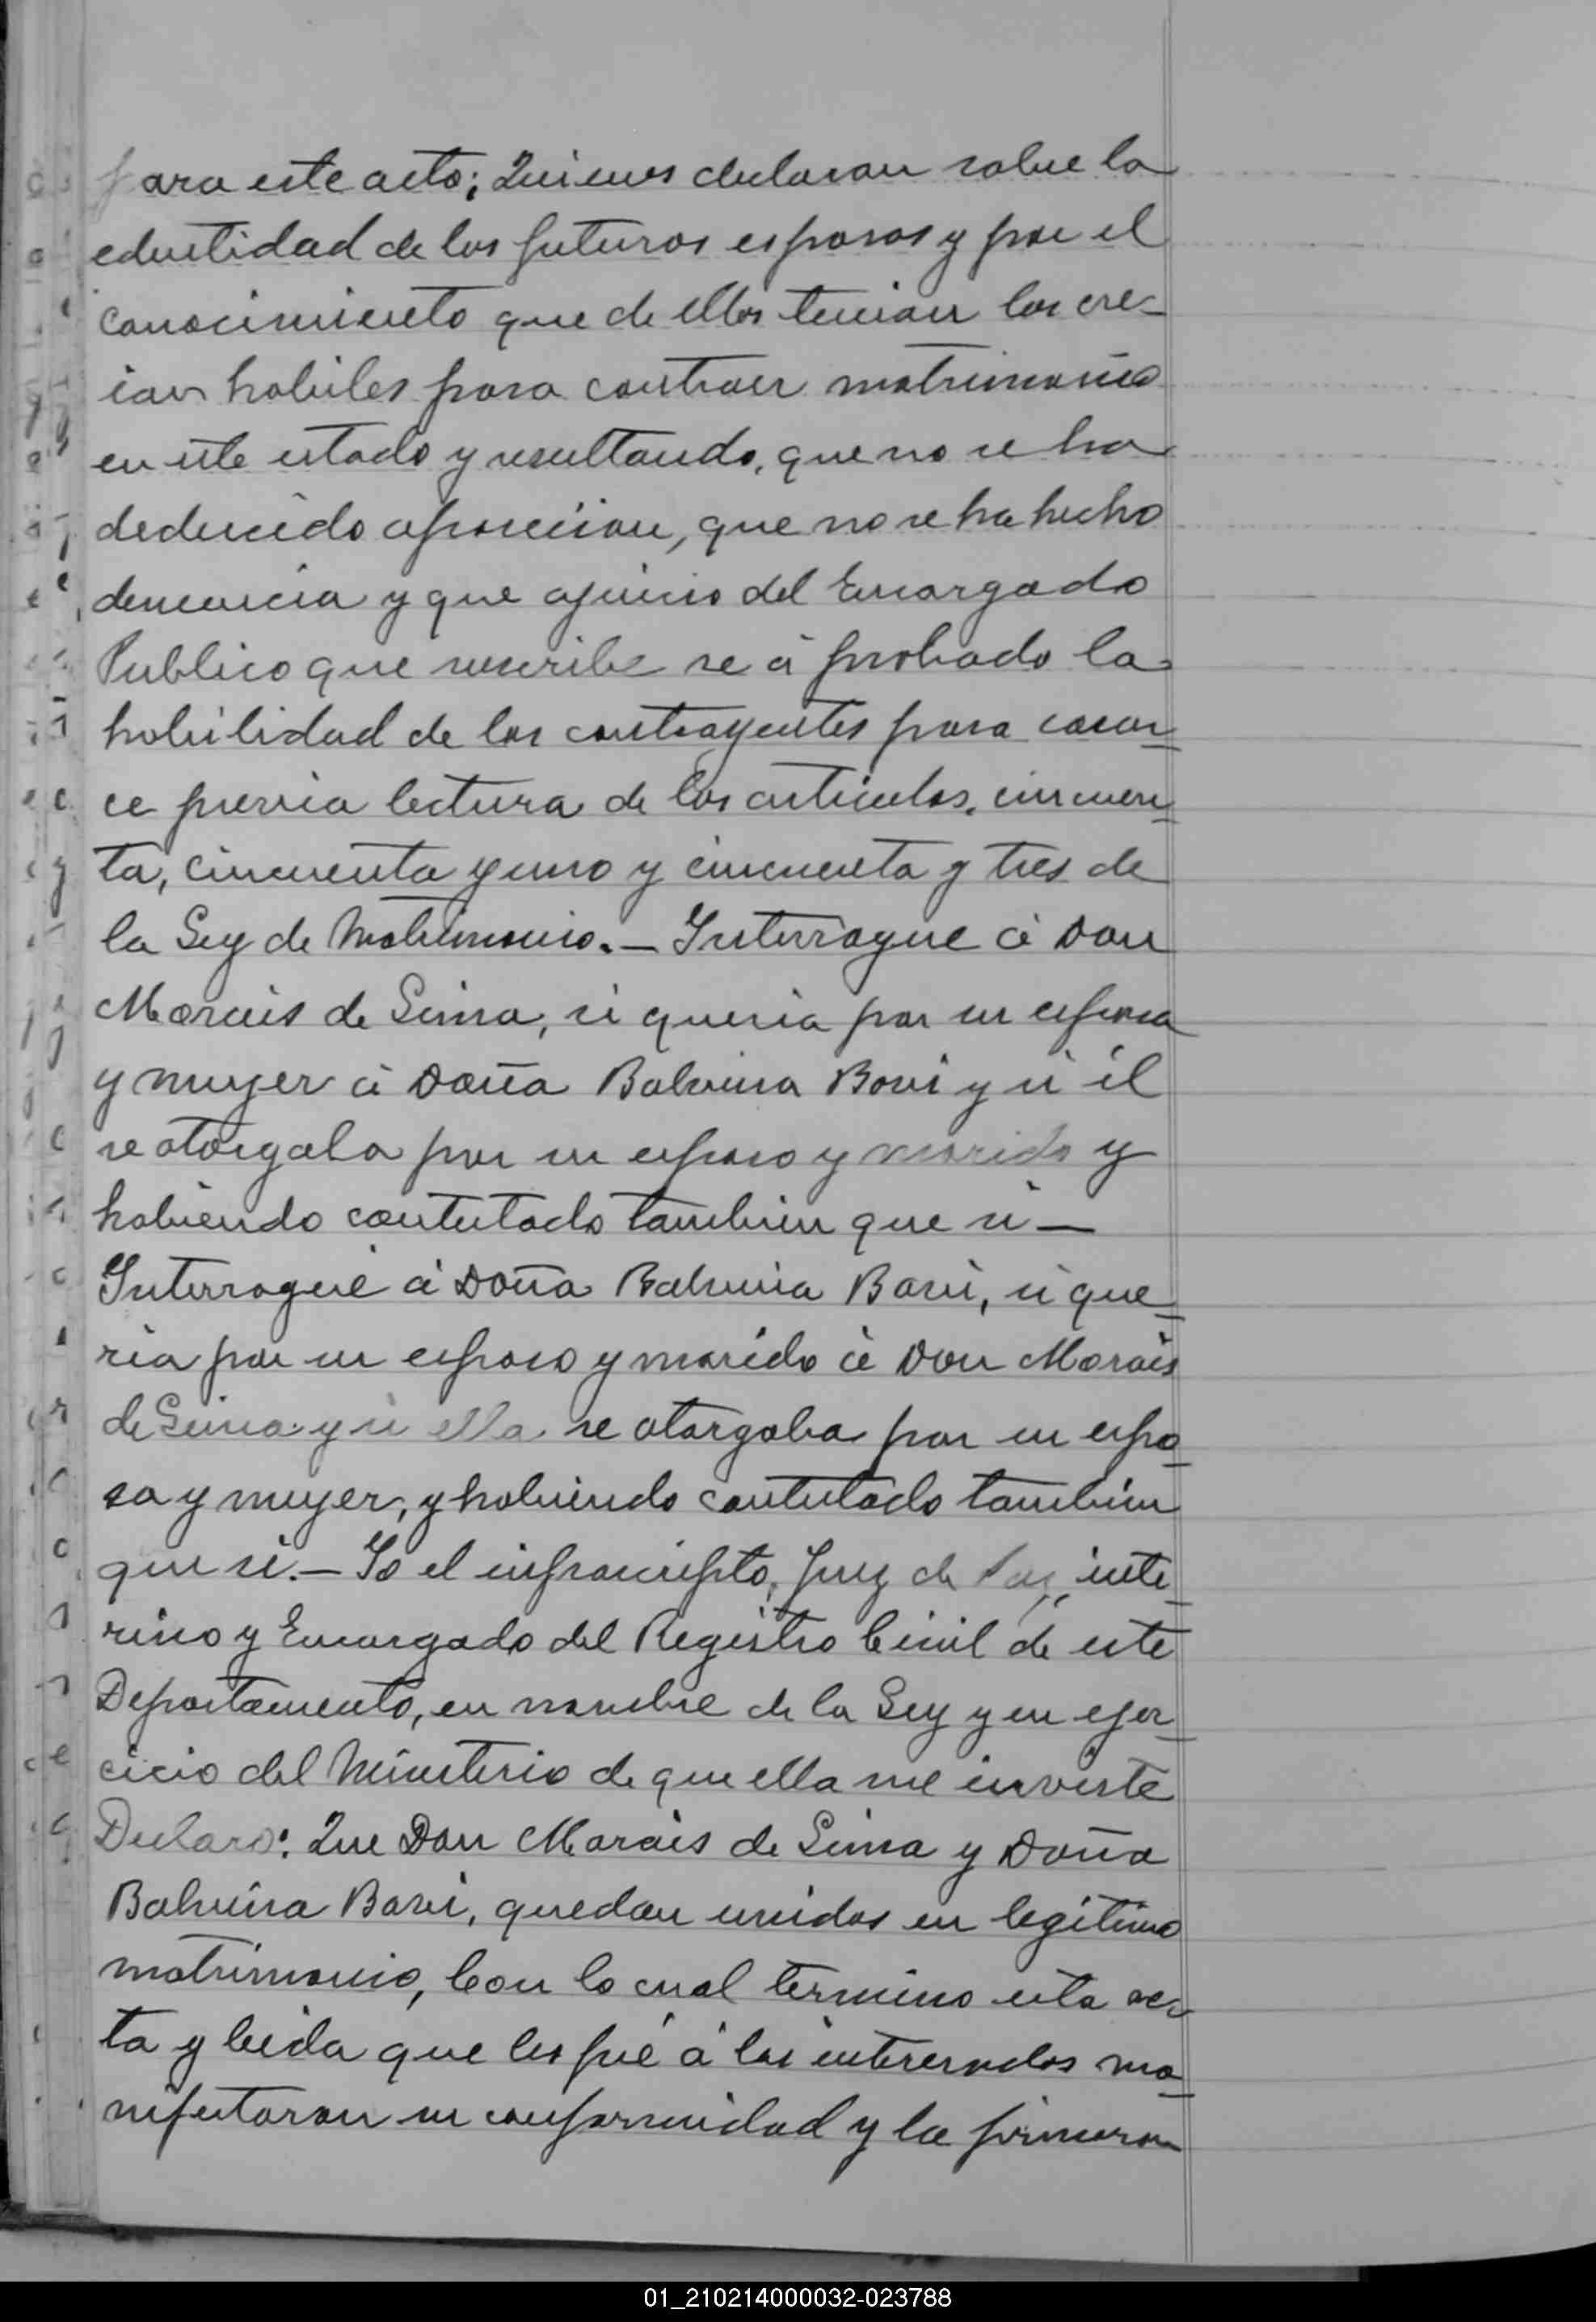 para este acto; Quienes declaran sobre la
edentidad de los futuros esposos y por el
conocimiento que de ellos tenian los cre-
ian habiles para contraer matrimonio
en este estado y resultando, que no se ha
deducido oposicion, que no se ha hecho
denuncia y que ajuicio del Encargado
Publico que suscribe se á probado la
habilidad de los contrayentes para casar-
ce previa lectura de los articulos, cincuen-
ta, cincuenta y uno y cincuenta y tres de
la Ley de Matrimonio.- Interrogue á Don
Morais de Lima, si queria por su esposa
y mujer á Doña Balvina Bori y si él
se otorgaba por su esposo y marido y
habiendo contestado tambien que si-
Interrogué á Doña Balvina Bori, si que-
ria por su esposo y marido á Don Morais
de Lima y si ella se otorgaba por su espo-
sa y mujer, y habiendo contestado tambien
que si.- Yo el infrascripto, Juez de Paz inte-
rino y Encargado del Registro Civil de este
Departamento, en nombre de la Ley y en ejer-
cicio del Ministerio de que ella me inviste
Declaro: Que Don Morais de Lima y Doña
Balvina Bori, quedan unidos en legitimo
matrimonio, Con lo cual termino esta ac-
ta y leida que les fué á los interesados ma-
nifestaron su conformidad y la firmaron
01_210214000032-023788